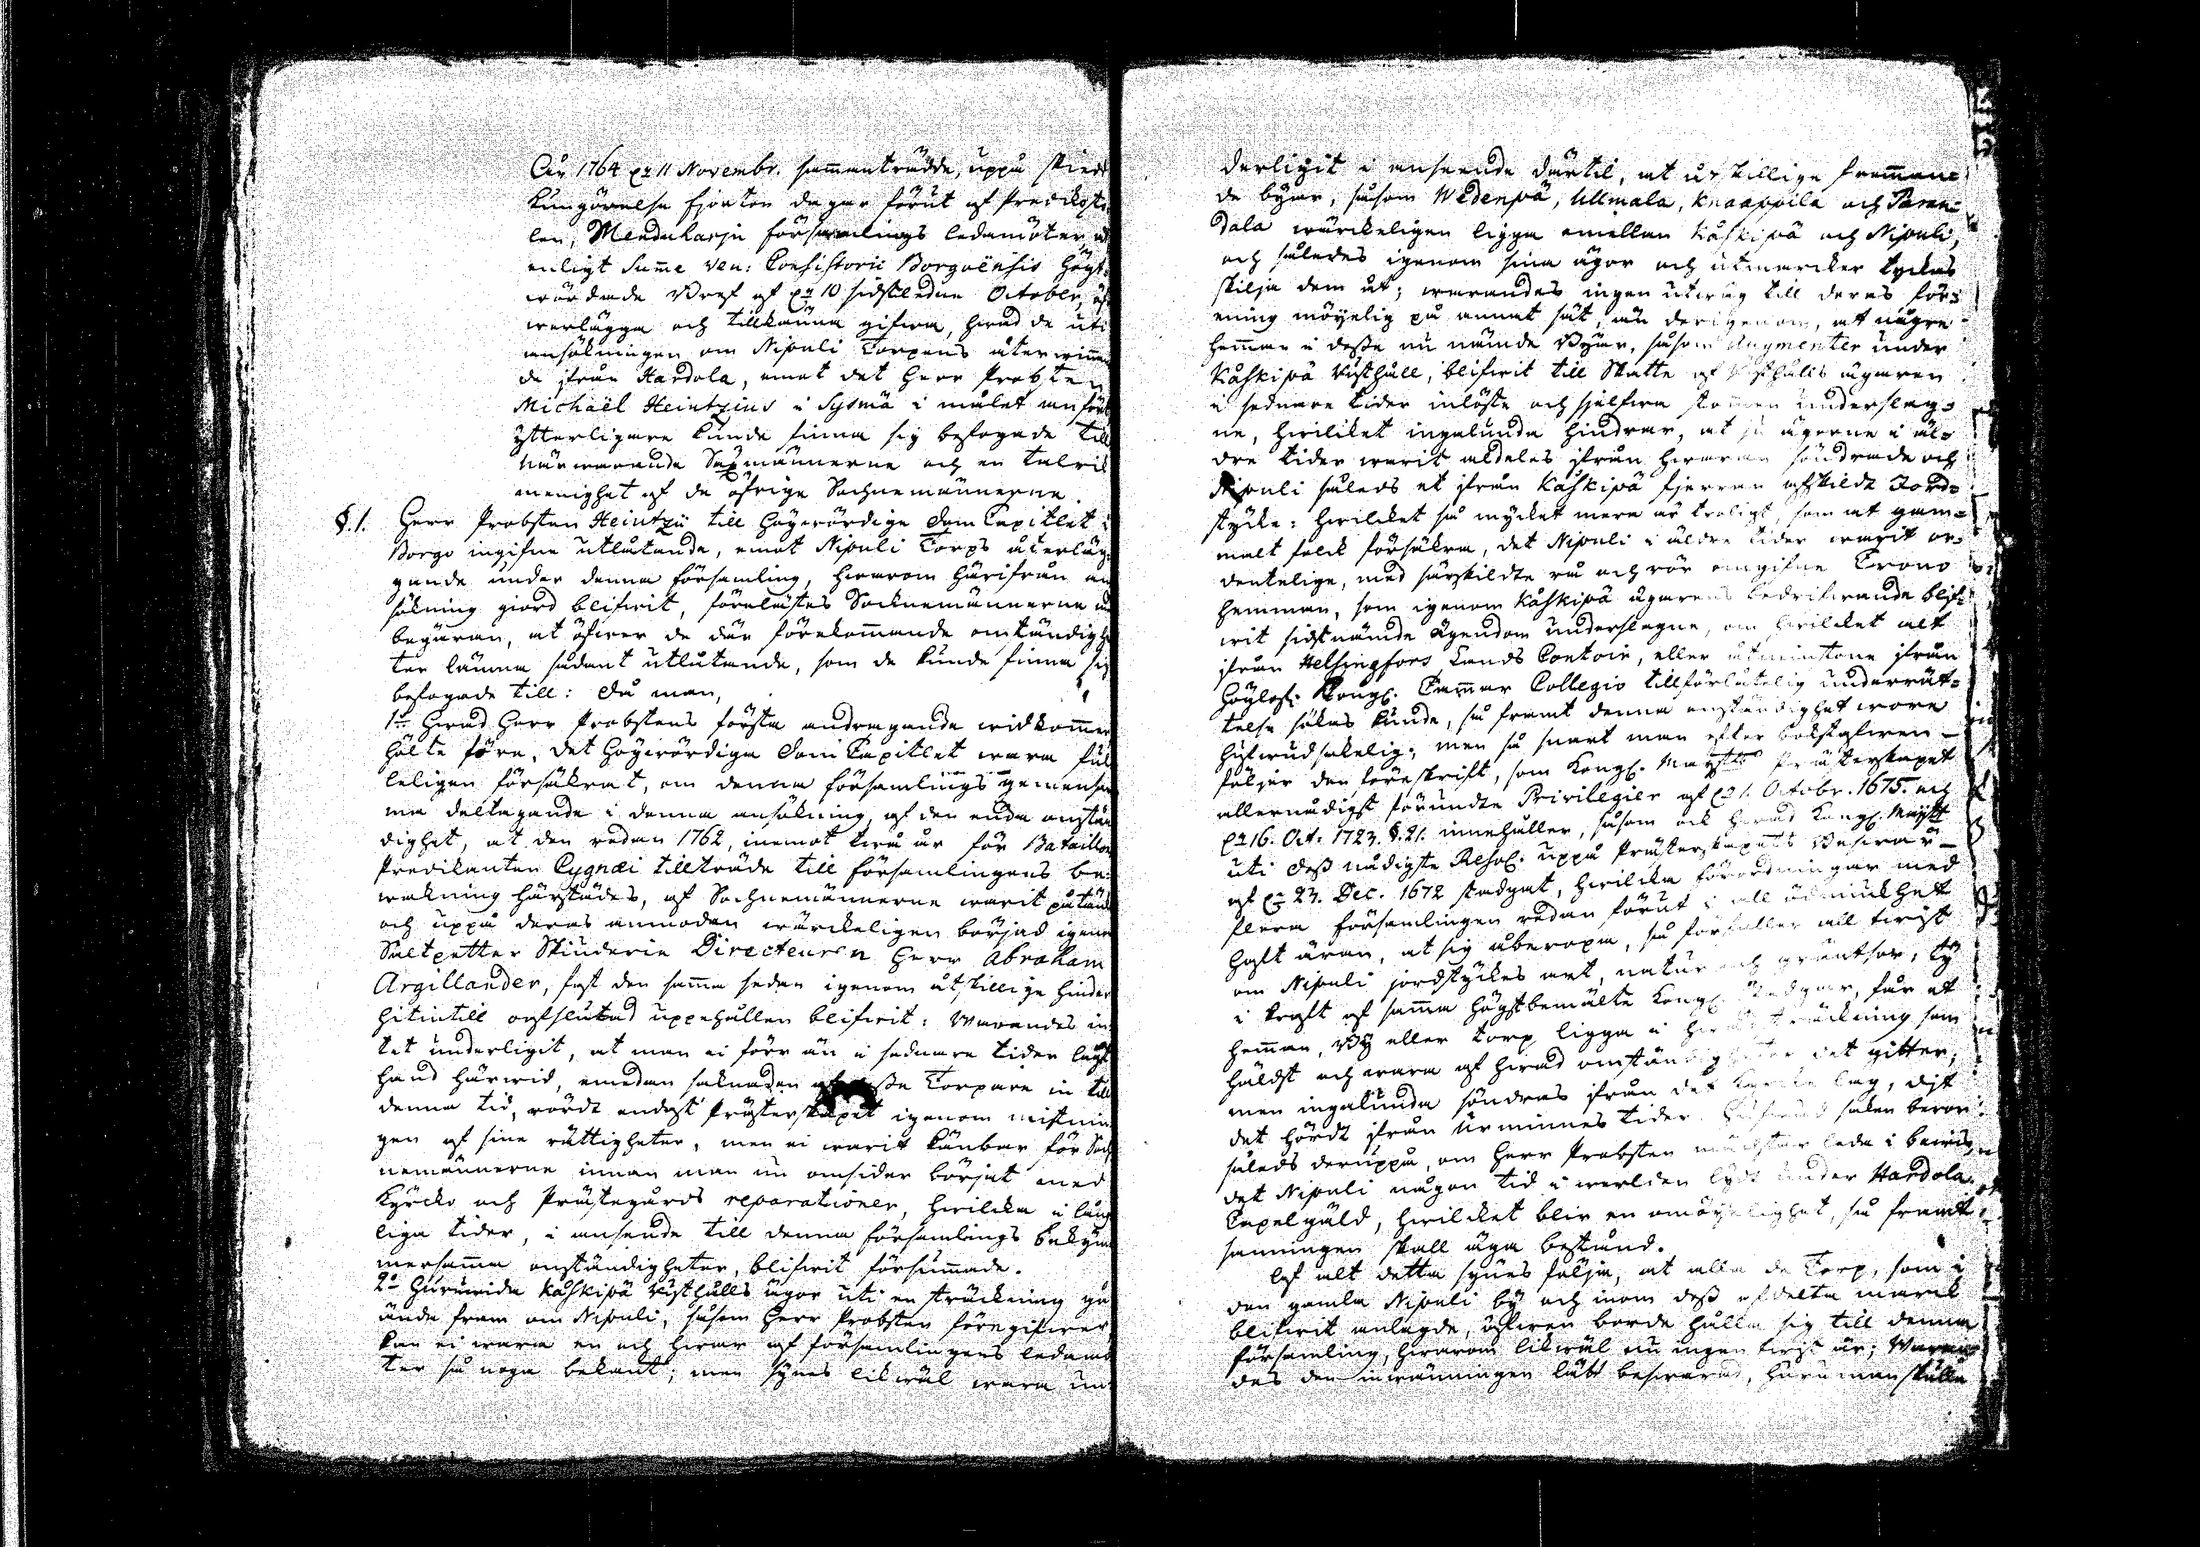 Åhr 1764 d. 11 Novembr. sammanträdde, uppå skiedd
kungörelse fjorton dagar förut af Predikosto-
len, Mendüharju församlings ledamöter, at
enligit Summe Ven: Consistorii Borgoënsis högt-
wördade Bref af d. 10 sidstledne October, öf-
werlägga och tillkänna gifwa, hwad de uti
ansökningen om Nipuli Torpens återwinnan-
de ifrån Hardola, emot det Herr Probsten
Michaël Heintzius i Sysmä i målet anfört
ytterligare kunde finna sig befogade till
närwarande Sexmännerne och en talrik
menighet af de öfrige Sochnemännerne.
§. 1. Herr Probsten Heintzii till Högwördige Dom Capitlet i
Borgo ingifne utlåtande, emot Nipuli Torps återläg-
gande under denna församling, hwarom härifrån an-
sökning giord blifwit, föreläistes Socknemännerne med
begäran, at öfwer de där förekommande omständighe-
ter lämna sådant utlåtande, som de kunde finna sig
befogade till: Då man,
1:o Hwad Herr Probstens första andragande widkommer
hölte före, det Högwördiga Dom Capitlet wara ful-
leligen försäkrat, om denna församlings gemensam-
ma deltagande i denna ansökning, af den enda omstän-
dighet, at den redan 1762, inemot twå år för Bataillons
Predikanten Cygnæi tillträde till församlingens be-
wakning härstädes, af Sochnemännerne warit påtänkt
och uppå deras anmodan wärckeligen börjad igenom
Saltpetter Siuderie Directeuren Herr Abraham
Argillander, fast den samma sedan igenom åtskillige hinder
hitintill oafslutad uppehållen blifwit: Warandes in-
tet underligit, at man ei förr än i sednare tider lagt
hand härwid, emedan saknaden af desse Torpare in till
denna tid, rördt endast Prästerskapet igenom mistnin-
gen af sine rättigheter, men ei warit känbar för Soch-
nemännerne innan man nu omsider börjat med
Kyrcko och Prästegårds reparationer, hwilcka i lång-
liga tider, i anseende till denna församlings bekym-
mersamma omständigheter, blifwit försummade.
2:o Huruwida Kåskipä rusthålls ägor uti en sträckning gå
ända fram om Nipuli, såsom Herr Probsten föregifwer,
kan ei wara en och hwar af församlingens ledamö-
ter så noga bekant; men synes likwäl wara un-
derligit i anseende därtil, at åtskillige fremman-
de byar, såsom Wedenpä, Ullmala, Knaappila och Taran-
dala wärckeligen ligga emellan Kåskipä och Nipuli,
och således igenom sina ägor och utmarcker tyckas
skilja dem åt; warandes ingen utwäg till deras för-
ening möyelig på annat sät, än derigenom, at några
hemman i desse nu nämde Byar, såsom Augmenter under
Kåskipä Rusthåll, blifwit till Skatte af Rusthålls ägaren
i sednare tider inlöste och sjelfwa stommen underslag-
ne, hwilcket ingalunda hindrar, at ju ägorne i äl-
dre tider warit aldeles ifrån hwarann söndrade och
Nipuli således et ifrån Kåskipä fjerran afskildt Jord-
stycke: hwilcket så mycket mera är troligt, som at gam-
malt folck försäkra, det Nipuli i äldre tider warit or-
dentelige, med särskildte rå och rör omgifne Crono
Hemman, som igenom Kåskipä ägarens bedrifwande blif-
wit sidstnämde Ägendom underslagne, om hwilcket alt
ifrån Helsingfors Lands Contoir, eller åtminstone ifrån
Höglofl. Kongl. Cammar Collegio tillförlåtelig underrät-
telse sökas kunde, så framt denna omständighet wore
hufwudsakelig; men så snart man efter bokstafwen
följer den föreskrift, som Kongl. Maj:tts Prästerskapet
allernådigst förundte Privilegier af d. 1. Octobr. 1675. och
d. 16. Oct. 1723. §. 21. innehåller, såsom ock hwad Kongl. Maj:tt
uti dess nådigste Resol. uppå Prästerskapets Beswär
af d. 23. Dec. 1672 stadgat, hwilcka förordningar med
flera församlingen redan förut i all ödmiukhet
haft äran, at sig åberopa, så förfaller all twist
om Nipuli jordstyckes art, natur och gräntsor, ty
i kraft af samma högstbemälte Kongl. Stadgar, får et
Hemman, By eller Torp ligga i hwad sträckning som
håldst och wara af hwad omständigheter det gitter,
men ingalunda söndras ifrån det kyrcko lag, dijt
det hördt ifrån urminnes tider. Hufwud saken beror
således deruppå, om Herr Probsten mäcktar leda i bewis,
det Nipuli någon tid i werlden lydt under Hardola
Capelgäld, hwilcket blir en omöyelighet, så framt
sanningen skall äga bestånd.
Af alt detta synes följa, at alla de Torp, som i
den gamla Nipuli by och inom dess afdelta marck
blifwit anlagde, äfwen borde hålla sig till denna
församling, hwarom likwäl nu ingen twist är; Waran-
des den inwänningen lätt beswarad, huru man skulle